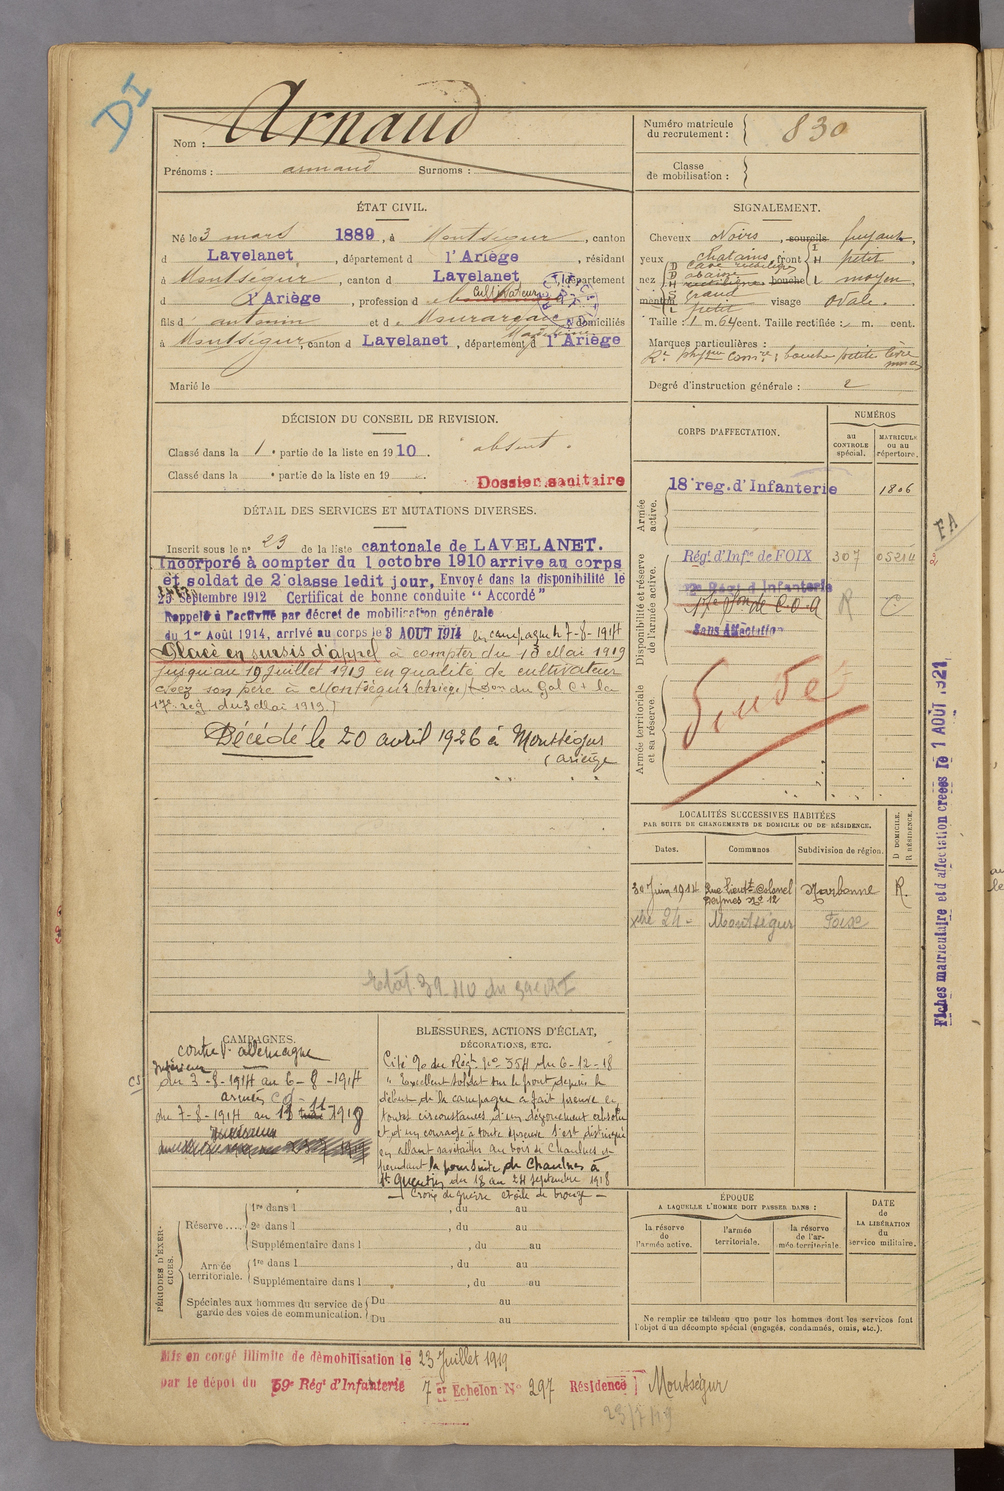 DI
Nom : Arnaud
Prénoms : armand Surnoms :
Numéro matricule du recrutement : 830
Classe de mobilisation :
ÉTAT CIVIL.
Né le 3 mars 1889, à Montségur, canton
d Lavelanet, département d l'Ariège, résidant
à Montségur, canton d Lavelanet, département
cultivateur
d l'Ariège, profession de
fils d' antonin et de domiciliés
à Montségur, canton d Lavelanet, département d l'Ariège
Marié le
SIGNALEMENT.
Cheveux Noirs, sourcils fuyant,
yeux chatains, front petit,
nez bouche moyen,
menton grand visage ovale.
petit
Taille : 1 m. 64 cent. Taille rectifiée : m. cent.
Marques particulières :
bouche petite lèvre
Degré d'instruction générale : 2
DÉCISION DU CONSEIL DE REVISION.
Classé dans la 1 e partie de la liste en 1910. absent.
Classé dans la e partie de la liste en 19 .
Dossier sanitaire
CORPS D'AFFECTATION.
NUMÉROS
au CONTROLE spécial.
MATRICULE ou au répertoire.
Armée active.
18e reg. d'Infanterie 1806
Disponibilité et réserve de l'armée active.
Régt d'Infie de FOIX 307 05214
Régt d'Infanterie
R C
Sans Affectation
Armée territoriale et sa réserve
FA
DÉTAIL DES SERVICES ET MUTATIONS DIVERSES.
Inscrit sous le n° 29 de la liste cantonale de LAVELANET.
Incorporé à compter du 1 octobre 1910 arrive au corps
et soldat de 2e classe ledit jour, Envoyé dans la disponibilité le
25 Septembre 1912 Certificat de bonne conduite "Accordé"
Rappelé à l'activité par décret de mobilisation générale
du 1er Août 1914, arrivé au corps le 3 AOUT 1914 en campagne le 7-8-1914
Placé en sursis d'appel à compter du 13 Mai 1919
jusqu'au 19 juillet 1919 en qualité de cultivateur
chez son père à Montségur (Ariège) du Gal Ct la
17e rég du 3 Mai 1919.)
Décédé le 20 avril 1926 à Montségur
(ariège
LOCALITÉS SUCCESSIVES HABITÉES
PAR SUITE DE CHANGEMENTS DE DOMICILE OU DE RÉSIDENCE.
Dates.
Communes
Subdivision de région.
D DOMICILE.
R RÉSIDENCE.
30 Juin 1914 Rue Lieutt Colonel Narbonne R.
n° 12
24 Montségur Foix
Fiches matriculaire et d'affectation créées le 1 AOÛT 1921
CAMPAGNES.
contre l'allemagne
Intérieur
du 3-8-1914 au 6-8-1914
du 7-8-1914 au
BLESSURES, ACTIONS D'ÉCLAT,
DÉCORATIONS, ETC.
Cité O. du Régt N° 354 du 6-12-18
" Excellent soldat sur le front depuis le
début de la campagne a fait preuve en
toutes circonstances d'un dévouement absolu
et d'un courage à toute épreuve s'est distingué
en allant ravitailler au bois de Chaulnes et
pendant la poursuite de Chaulnes à
St Quentin du 18 au 24 septembre 1918
— Croix de guerre étoile de bronze —
PÉRIODES D'EXERCICES.
Réserve....
1re dans l , du au
2e dans l , du au
Supplémentaire dans l , du au
Armée territoriale.
1re dans l , du au
Supplémentaire dans l , du au
Spéciales aux hommes du service de garde des voies de communication.
Du au
Du au
ÉPOQUE
A LAQUELLE L'HOMME DOIT PASSER DANS :
la réserve de l'armée active.
l'armée territoriale.
la réserve de l'armée territoriale
DATE de LA LIBÉRATION du service militaire.
Ne remplir ce tableau que pour les hommes dont les services font
l'objet d'un décompte spécial (engagés, condamnés, omis, etc.).
Mis en congé illimité de démobilisation le 23 Juillet 1919
par le dépôt du 59e Régt d'Infanterie 7 e Echelon N° 297 Résidence Montségur
23/7/19